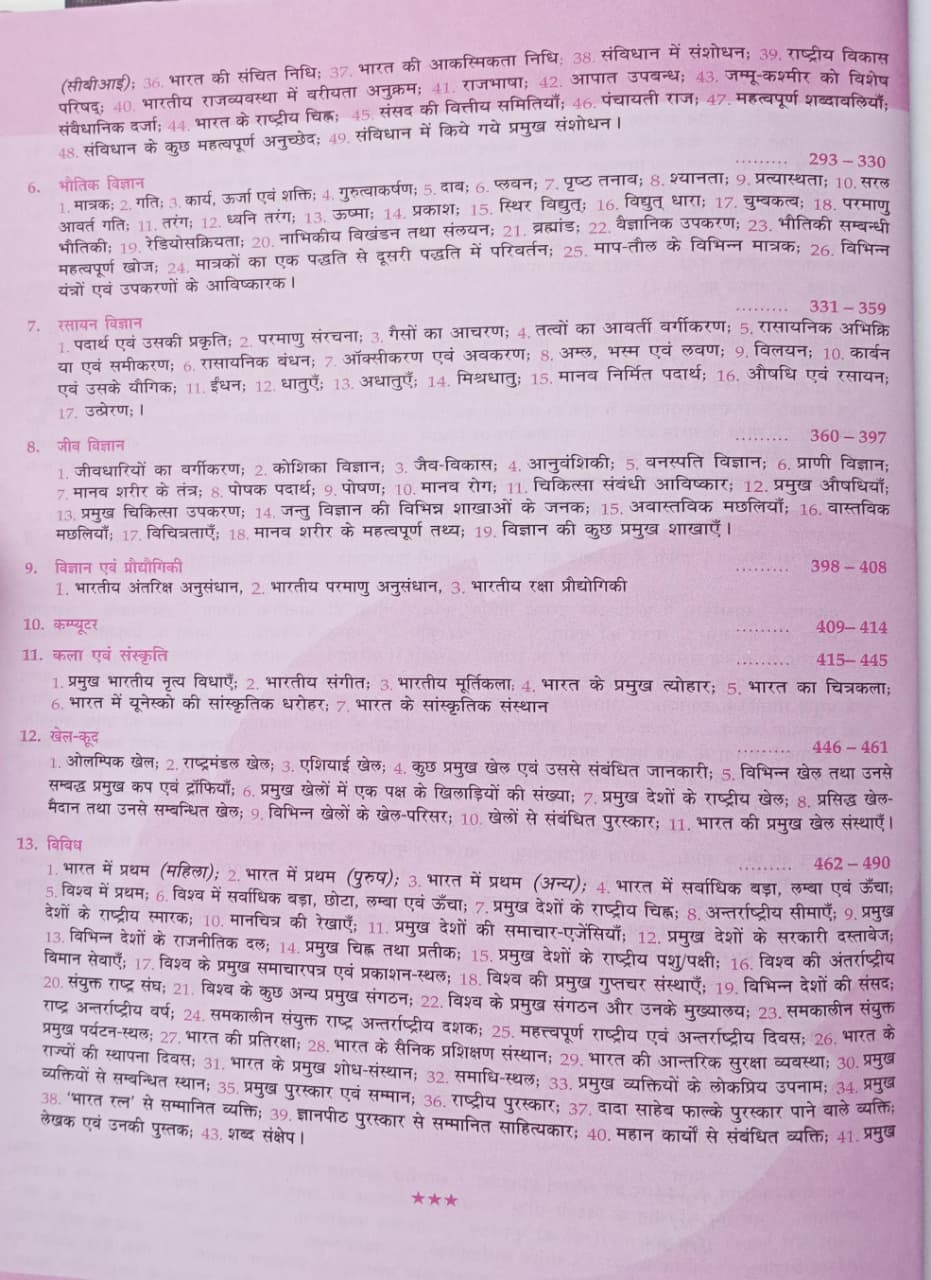 (सीबीआई); 36. भारत की संचित निधि; 37. भारत की आकस्मिकता निधि; 38. संविधान में संशोधन; 39. राष्ट्रीय विकास
परिषद्; 40. भारतीय राजव्यवस्था में वरीयता अनुक्रम; 41. राजभाषा; 42. आपात उपबन्ध; 43. जम्मू-कश्मीर को विशेष
संवैधानिक दर्जा; 44. भारत के राष्ट्रीय चिह्न; 45. संसद की वित्तीय समितियाँ; 46. पंचायती राज; 47. महत्वपूर्ण शब्दाबलियाँ;
48. संविधान के कुछ महत्वपूर्ण अनुच्छेद; 49. संविधान में किये गये प्रमुख संशोधन।
6. भौतिक विज्ञान ......... 293 – 330
1. मात्रक; 2. गति; 3. कार्य, ऊर्जा एवं शक्ति; 4. गुरुत्वाकर्षण; 5. दाब; 6. प्लवन; 7. पृष्ठ तनाव; 8. श्यानता; 9. प्रत्यास्थता; 10. सरल
आवर्त गति; 11. तरंग; 12. ध्वनि तरंग; 13. ऊष्मा; 14. प्रकाश; 15. स्थिर विद्युत्; 16. विद्युत् धारा; 17. चुम्बकत्व; 18. परमाणु
भौतिकी; 19. रेडियोसक्रियता; 20. नाभिकीय विखंडन तथा संलयन; 21. ब्रह्मांड; 22. वैज्ञानिक उपकरण; 23. भौतिकी सम्बन्धी
महत्वपूर्ण खोज; 24. मात्रकों का एक पद्धति से दूसरी पद्धति में परिवर्तन; 25. माप-तौल के विभिन्न मात्रक; 26. विभिन्न
यंत्रों एवं उपकरणों के आविष्कारक।
7. रसायन विज्ञान ......... 331 – 359
1. पदार्थ एवं उसकी प्रकृति; 2. परमाणु संरचना; 3. गैसों का आचरण; 4. तत्वों का आवर्ती वर्गीकरण; 5. रासायनिक अभिक्रि
या एवं समीकरण; 6. रासायनिक बंधन; 7. ऑक्सीकरण एवं अवकरण; 8. अम्ल, भस्म एवं लवण; 9. विलयन; 10. कार्बन
एवं उसके यौगिक; 11. ईंधन; 12. धातुएँ; 13. अधातुएँ; 14. मिश्रधातु; 15. मानव निर्मित पदार्थ; 16. औषधि एवं रसायन;
17. उत्प्रेरण;।
8. जीव विज्ञान ......... 360 – 397
1. जीवधारियों का वर्गीकरण; 2. कोशिका विज्ञान; 3. जैव-विकास; 4. आनुवंशिकी; 5. वनस्पति विज्ञान; 6. प्राणी विज्ञान;
7. मानव शरीर के तंत्र; 8. पोषक पदार्थ; 9. पोषण; 10. मानव रोग; 11. चिकित्सा संबंधी आविष्कार; 12. प्रमुख औषधियाँ;
13. प्रमुख चिकित्सा उपकरण; 14. जन्तु विज्ञान की विभिन्न शाखाओं के जनक; 15. अवास्तविक मछलियाँ; 16. वास्तविक
मछलियाँ; 17. विचित्रताएँ; 18. मानव शरीर के महत्वपूर्ण तथ्य; 19. विज्ञान की कुछ प्रमुख शाखाएँ।
9. विज्ञान एवं प्रौद्यौगिकी ......... 398 – 408
1. भारतीय अंतरिक्ष अनुसंधान, 2. भारतीय परमाणु अनुसंधान, 3. भारतीय रक्षा प्रौद्योगिकी
10. कम्प्यूटर ......... 409– 414
11. कला एवं संस्कृति ......... 415– 445
1. प्रमुख भारतीय नृत्य विधाएँ; 2. भारतीय संगीत; 3. भारतीय मूर्तिकला; 4. भारत के प्रमुख त्योहार; 5. भारत का चित्रकला;
6. भारत में यूनेस्को की सांस्कृतिक धरोहर; 7. भारत के सांस्कृतिक संस्थान
12. खेल-कूद ......... 446 – 461
1. ओलम्पिक खेल; 2. राष्ट्रमंडल खेल; 3. एशियाई खेल; 4. कुछ प्रमुख खेल एवं उससे संबंधित जानकारी; 5. विभिन्न खेल तथा उनसे
सम्बद्ध प्रमुख कप एवं ट्रॉफियाँ; 6. प्रमुख खेलों में एक पक्ष के खिलाड़ियों की संख्या; 7. प्रमुख देशों के राष्ट्रीय खेल; 8. प्रसिद्ध खेल-
मैदान तथा उनसे सम्बन्धित खेल; 9. विभिन्न खेलों के खेल-परिसर; 10. खेलों से संबंधित पुरस्कार; 11. भारत की प्रमुख खेल संस्थाएँ।
13. विविध ......... 462 – 490
1. भारत में प्रथम (महिला); 2. भारत में प्रथम (पुरुष); 3. भारत में प्रथम (अन्य); 4. भारत में सर्वाधिक बड़ा, लम्बा एवं ऊँचा;
5. विश्व में प्रथम; 6. विश्व में सर्वाधिक बड़ा, छोटा, लम्बा एवं ऊँचा; 7. प्रमुख देशों के राष्ट्रीय चिह्न; 8. अन्तर्राष्ट्रीय सीमाएँ; 9. प्रमुख
देशों के राष्ट्रीय स्मारक; 10. मानचित्र की रेखाएँ; 11. प्रमुख देशों की समाचार-एजेंसियाँ; 12. प्रमुख देशों के सरकारी दस्तावेज;
13. विभिन्न देशों के राजनीतिक दल; 14. प्रमुख चिह्न तथा प्रतीक; 15. प्रमुख देशों के राष्ट्रीय पशु/पक्षी; 16. विश्व की अंतर्राष्ट्रीय
विमान सेवाएँ; 17. विश्व के प्रमुख समाचारपत्र एवं प्रकाशन-स्थल; 18. विश्व की प्रमुख गुप्तचर संस्थाएँ; 19. विभिन्न देशों की संसद;
20. संयुक्त राष्ट्र संघ; 21. विश्व के कुछ अन्य प्रमुख संगठन; 22. विश्व के प्रमुख संगठन और उनके मुख्यालय; 23. समकालीन संयुक्त
राष्ट्र अन्तर्राष्ट्रीय वर्ष; 24. समकालीन संयुक्त राष्ट्र अन्तर्राष्ट्रीय दशक; 25. महत्त्वपूर्ण राष्ट्रीय एवं अन्तर्राष्ट्रीय दिवस; 26. भारत के
प्रमुख पर्यटन-स्थल; 27. भारत की प्रतिरक्षा; 28. भारत के सैनिक प्रशिक्षण संस्थान; 29. भारत की आन्तरिक सुरक्षा व्यवस्था; 30. प्रमुख
राज्यों की स्थापना दिवस; 31. भारत के प्रमुख शोध-संस्थान; 32. समाधि-स्थल; 33. प्रमुख व्यक्तियों के लोकप्रिय उपनाम; 34. प्रमुख
व्यक्तियों से सम्बन्धित स्थान; 35. प्रमुख पुरस्कार एवं सम्मान; 36. राष्ट्रीय पुरस्कार; 37. दादा साहेब फाल्के पुरस्कार पाने वाले व्यक्ति;
38. 'भारत रत्न' से सम्मानित व्यक्ति; 39. ज्ञानपीठ पुरस्कार से सम्मानित साहित्यकार; 40. महान कार्यों से संबंधित व्यक्ति; 41. प्रमुख
लेखक एवं उनकी पुस्तक; 43. शब्द संक्षेप।
★★★